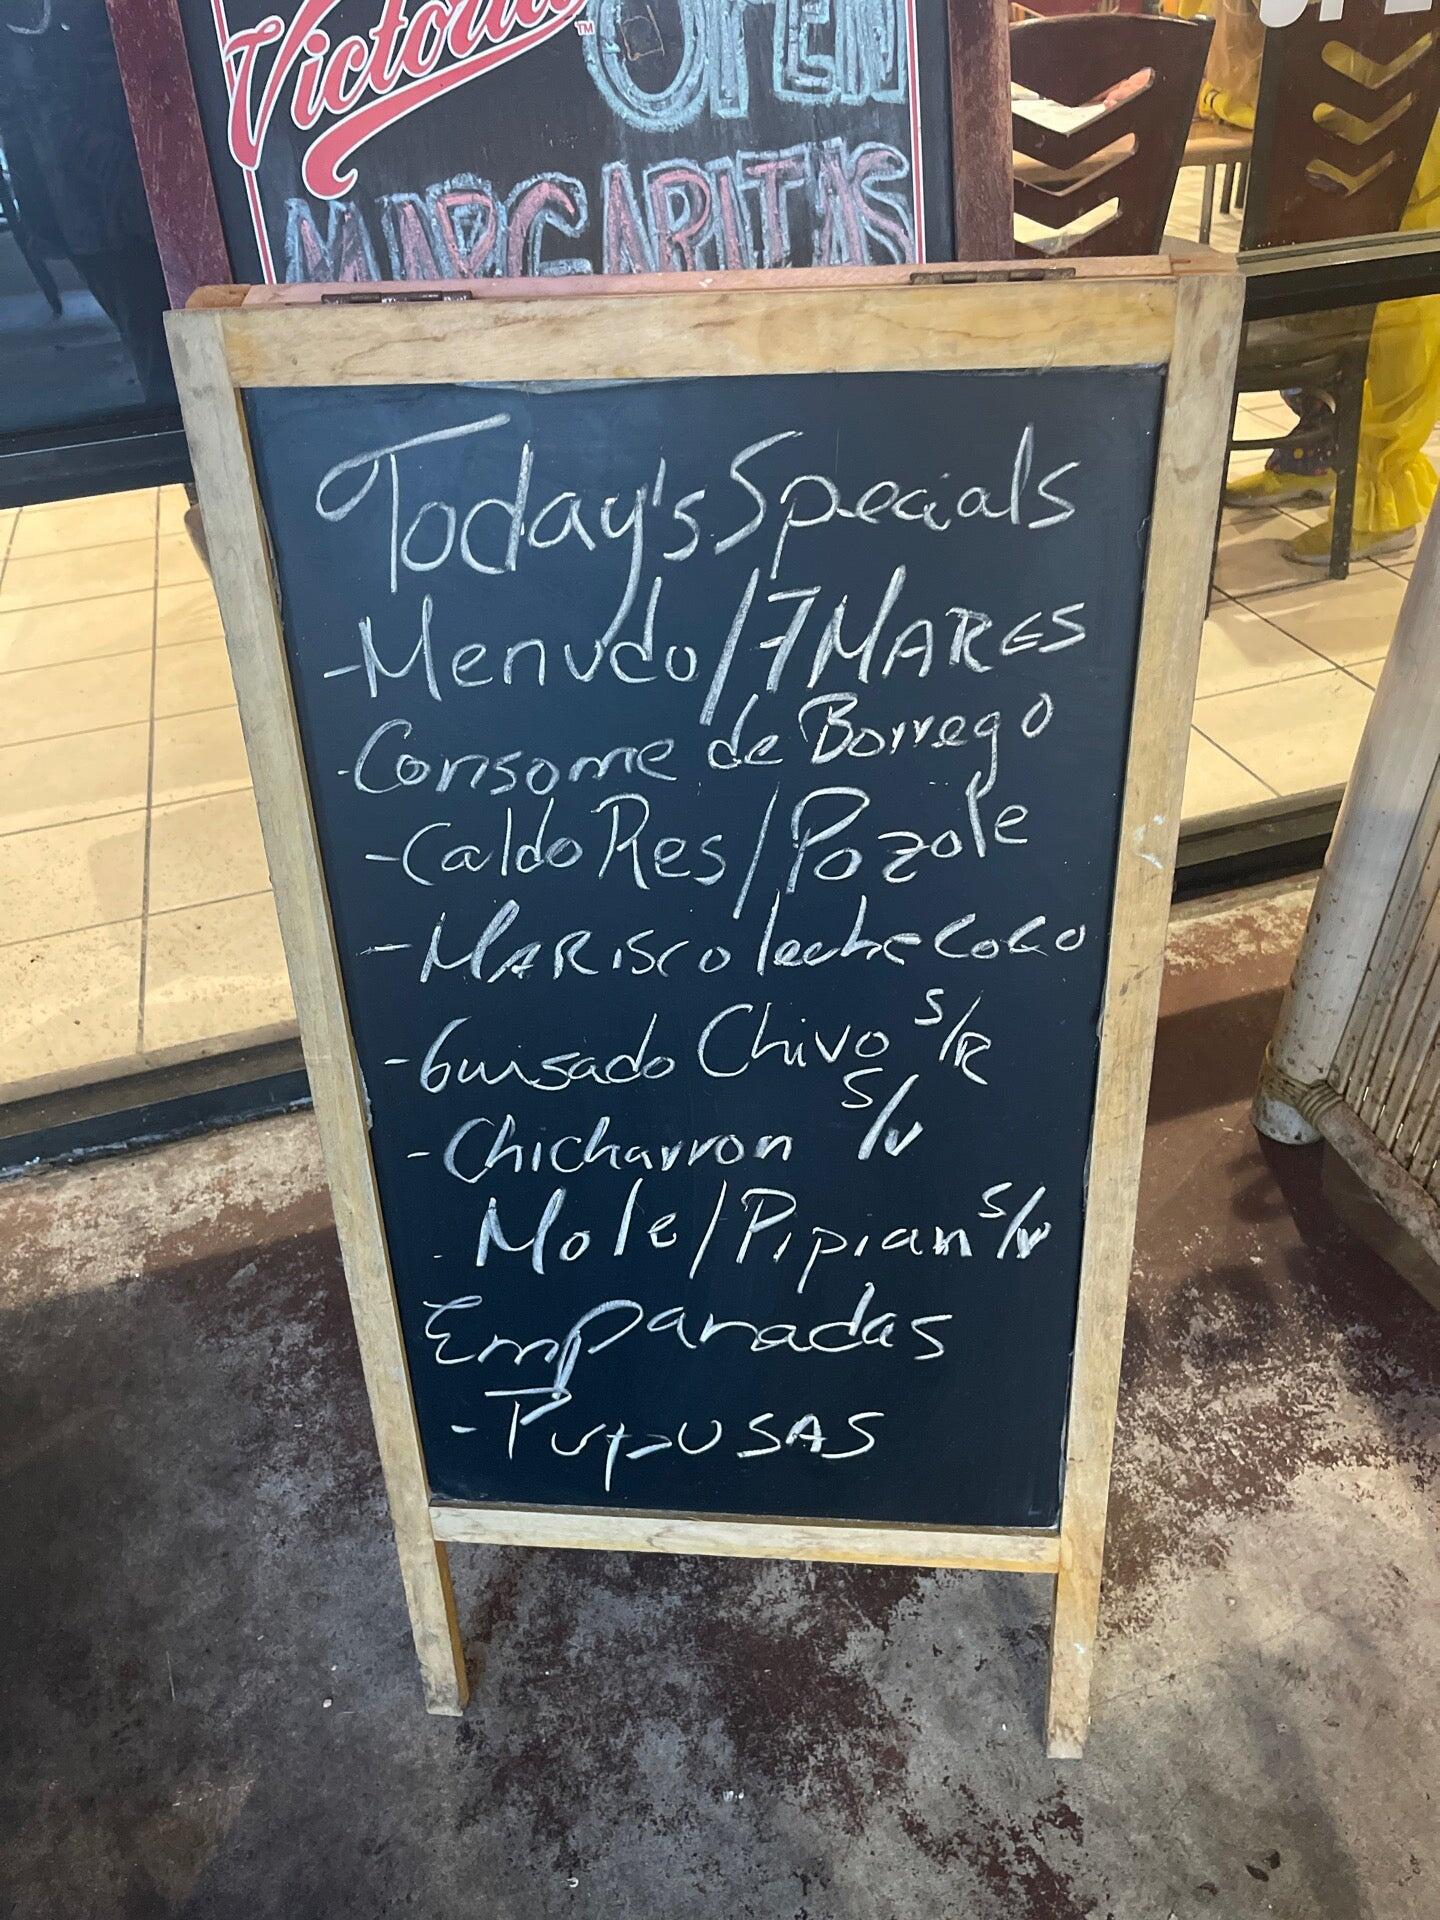 Victoria™ OPEN
MARGARITAS
Today's Specials
-Menudo/7 MARES
-Consome de Borrego
-Caldo Res/Pozole
-MARISCO leche Coco
-Guisado Chivo S/R
-Chicharron S/V
-Mole/Pipian S/V
Empanadas
-PupUSAS